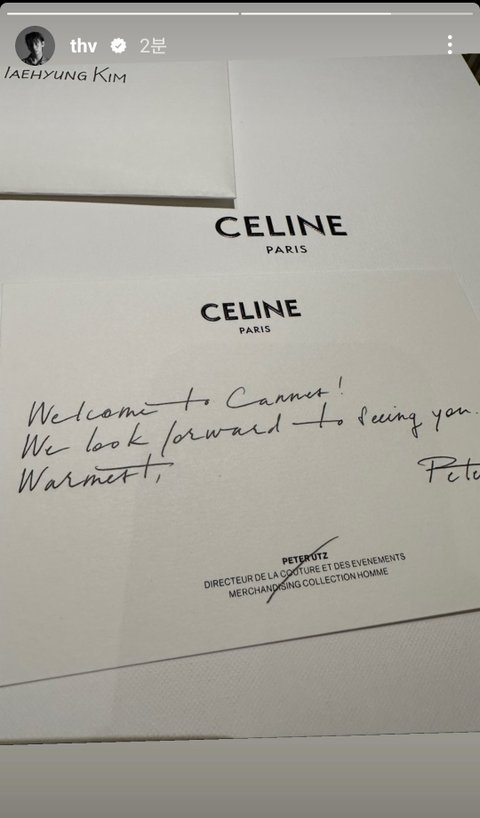 thv 2분
TAEHYUNG KIM
CELINE
PARIS
CELINE
PARIS
Welcome to Cannes!
We look forward to seeing you.
Warmest,
Pete
PETER UTZ
DIRECTEUR DE LA COUTURE ET DES EVENEMENTS
MERCHANDISING COLLECTION HOMME